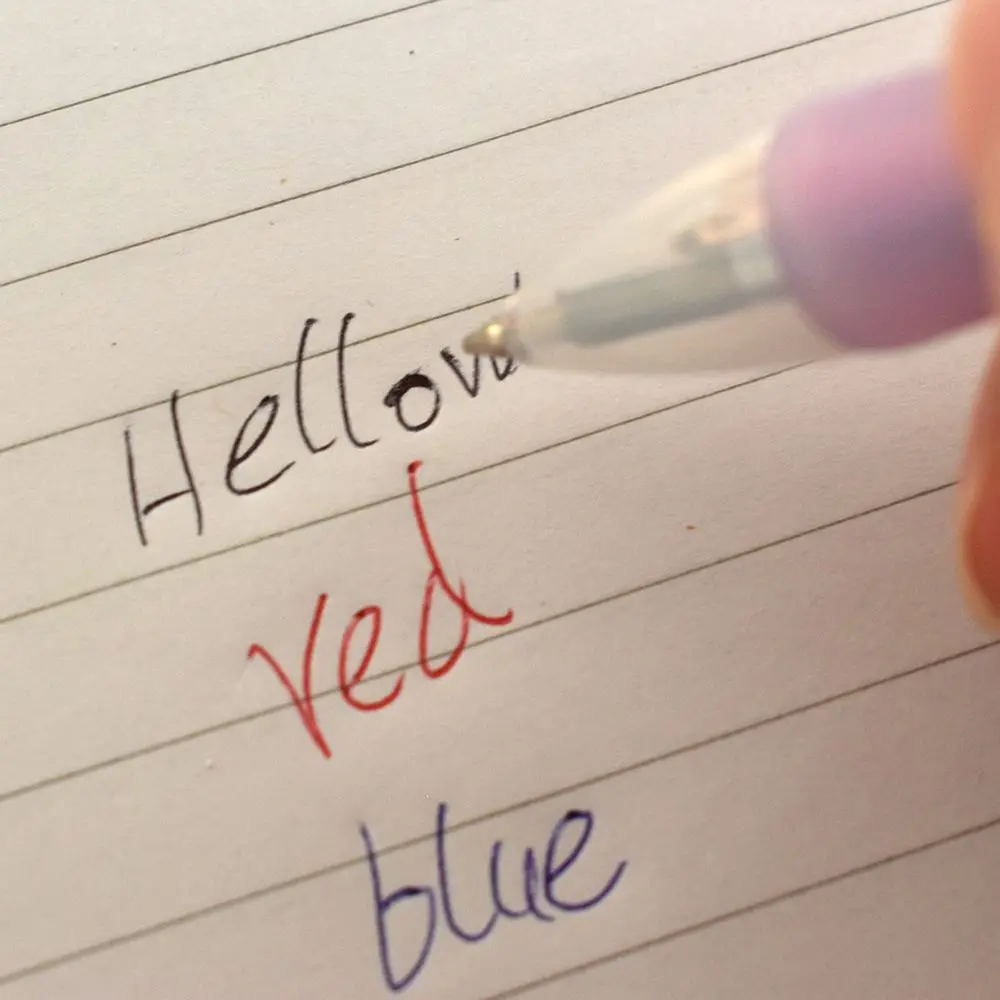 Hellow
red
blue